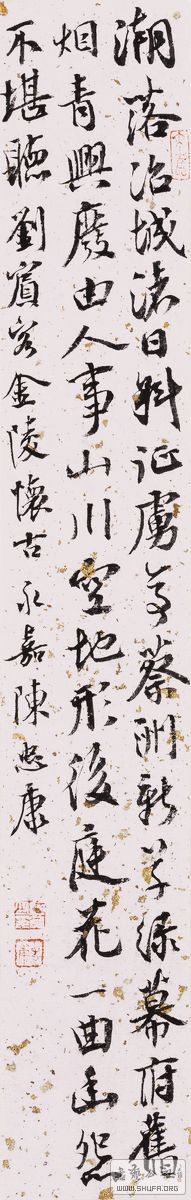 潮落冶城渚日斜征虜亭蔡洲新草綠幕府舊
烟青興廢由人事山川空地形後庭花一曲幽怨
不堪聽劉賓客金陵懷古永嘉陳忠康
WWW.SHUFA.ORG